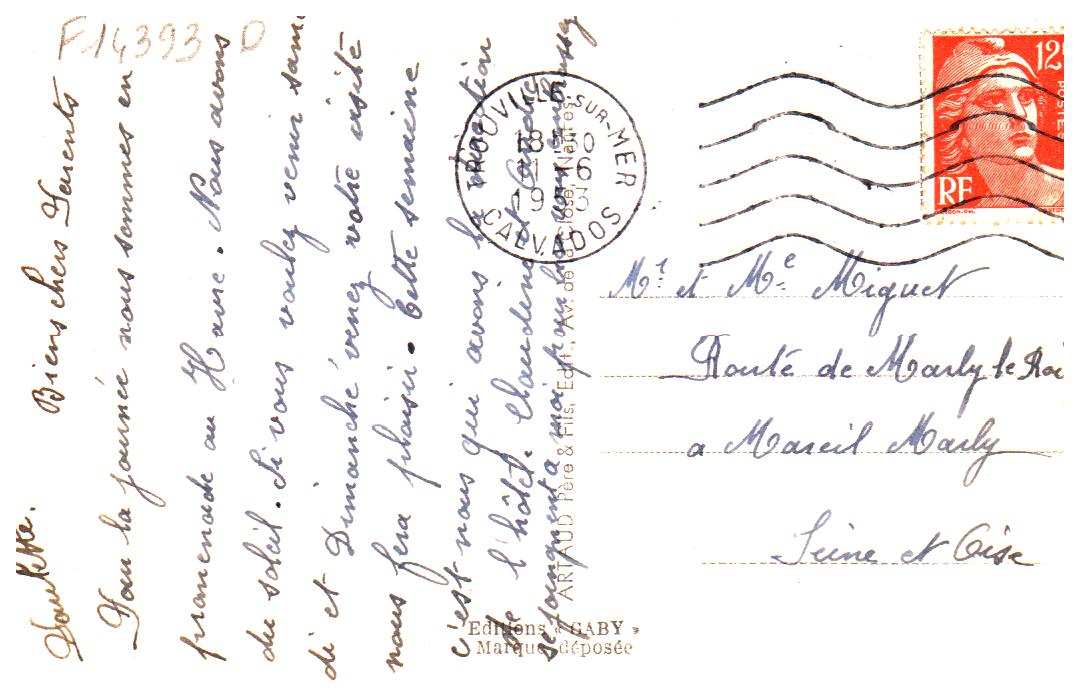 F14393 D
Paulette.
Biens chers Parents
Pour la journée nous sommes en
promenade au Havre. Nous avons
du soleil. Si vous voulez venir same
di et Dimanche venez votre visite
nous fera plaisir. Cette semaine
c'est nous qui avons la direction
de l'hôtel. Claudine et
se joingnent a moi pour
TROUVILLE-SUR-MER
18 30
11 6
19
CALVADOS
12
POSTES
RF
Mr et Me Miguet
Route de Marly le Roi
a Mareil Marly
Seine et Oise
ARTAUD Père & Fils, Edit., Av. de la Close, Nantes
Editions « GABY »
Marque déposée